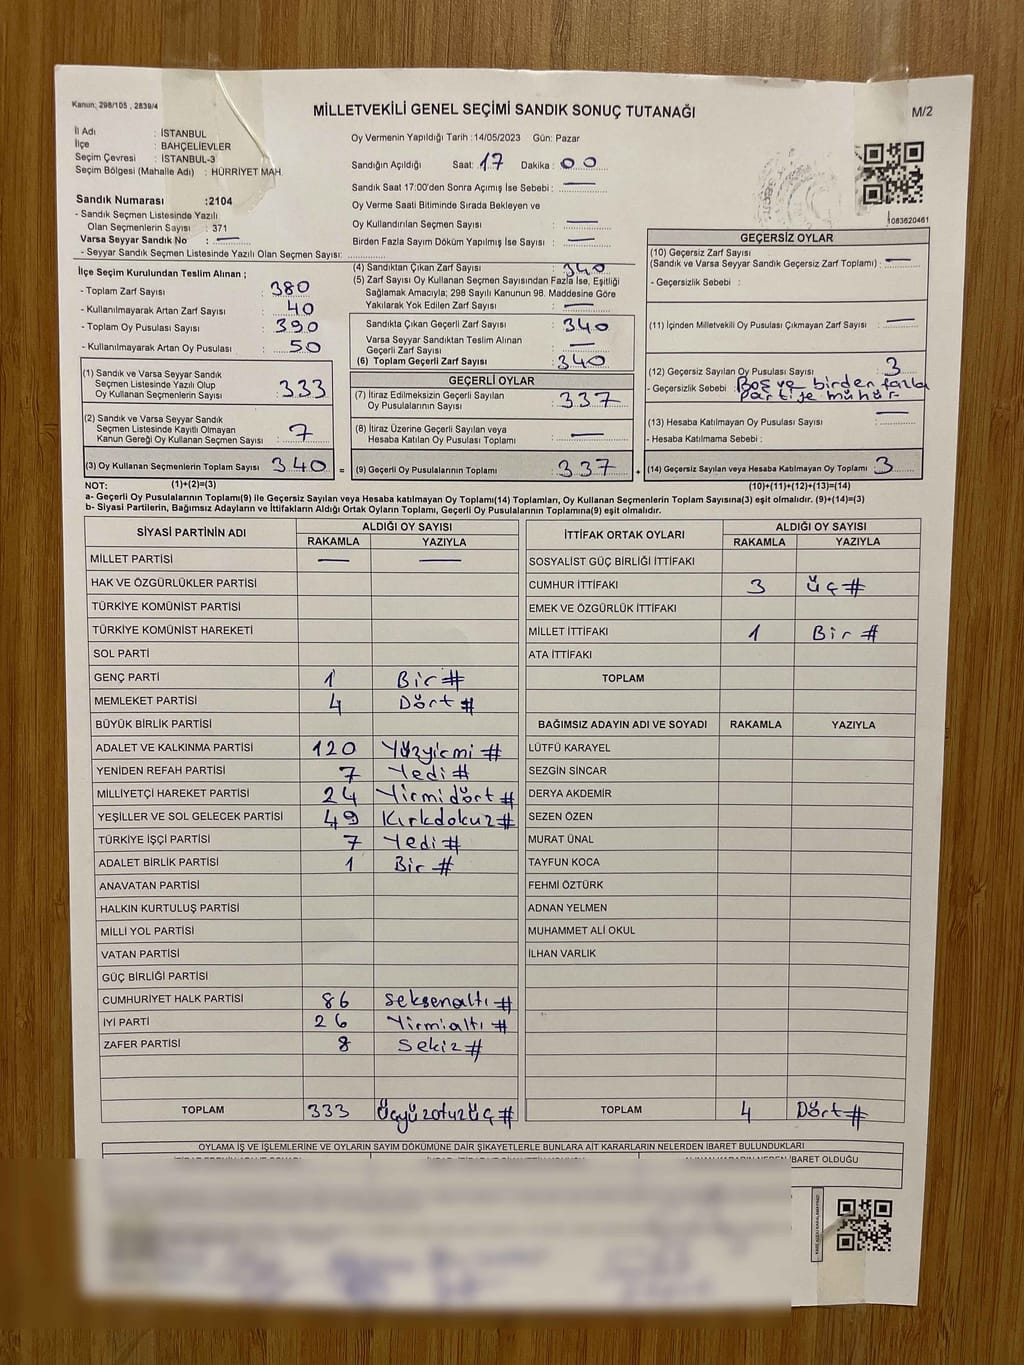 Kanun; 298/105 , 2839/4
MİLLETVEKİLİ GENEL SEÇİMİ SANDIK SONUÇ TUTANAĞI
M/2
İl Adı : İSTANBUL
İlçe : BAHÇELİEVLER
Seçim Çevresi : İSTANBUL-3
Seçim Bölgesi (Mahalle Adı) : HÜRRİYET MAH.
Oy Vermenin Yapıldığı Tarih :14/05/2023 Gün: Pazar
Sandığın Açıldığı Saat: 17 Dakika : 00
Sandık Saat 17:00'den Sonra Açımış İse Sebebi : —
Oy Verme Saati Bitiminde Sırada Bekleyen ve
Oy Kullandırılan Seçmen Sayısı : —
Birden Fazla Sayım Döküm Yapılmış İse Sayısı : —
1083620461
Sandık Numarası :2104
- Sandık Seçmen Listesinde Yazılı
Olan Seçmenlerin Sayısı : 371
Varsa Seyyar Sandık No : —
- Seyyar Sandık Seçmen Listesinde Yazılı Olan Seçmen Sayısı:
İlçe Seçim Kurulundan Teslim Alınan ;
- Toplam Zarf Sayısı : 380
- Kullanılmayarak Artan Zarf Sayısı : 40
- Toplam Oy Pusulası Sayısı : 390
- Kullanılmayarak Artan Oy Pusulası : 50
(1) Sandık ve Varsa Seyyar Sandık
Seçmen Listesinde Yazılı Olup
Oy Kullanan Seçmenlerin Sayısı : 333
(2) Sandık ve Varsa Seyyar Sandık
Seçmen Listesinde Kayıtlı Olmayan
Kanun Gereği Oy Kullanan Seçmen Sayısı : 7
(3) Oy Kullanan Seçmenlerin Toplam Sayısı : 340 =
(4) Sandıktan Çıkan Zarf Sayısı : 340
(5) Zarf Sayısı Oy Kullanan Seçmen Sayısından Fazla İse, Eşitliği
Sağlamak Amacıyla; 298 Sayılı Kanunun 98. Maddesine Göre
Yakılarak Yok Edilen Zarf Sayısı : —
Sandıkta Çıkan Geçerli Zarf Sayısı : 340
Varsa Seyyar Sandıktan Teslim Alınan
Geçerli Zarf Sayısı : —
(6) Toplam Geçerli Zarf Sayısı : 340
GEÇERLİ OYLAR
(7) İtiraz Edilmeksizin Geçerli Sayılan
Oy Pusulalarının Sayısı : 337
(8) İtiraz Üzerine Geçerli Sayılan veya
Hesaba Katılan Oy Pusulası Toplamı : —
(9) Geçerli Oy Pusulalarının Toplamı : 337 +
GEÇERSİZ OYLAR
(10) Geçersiz Zarf Sayısı
(Sandık ve Varsa Seyyar Sandık Geçersiz Zarf Toplamı) : —
- Geçersizlik Sebebi :
(11) İçinden Milletvekili Oy Pusulası Çıkmayan Zarf Sayısı : —
(12) Geçersiz Sayılan Oy Pusulası Sayısı : 3
- Geçersizlik Sebebi : Boş ve birden fazla
partiye mühür
(13) Hesaba Katılmayan Oy Pusulası Sayısı : —
- Hesaba Katılmama Sebebi :
(14) Geçersiz Sayılan veya Hesaba Katılmayan Oy Toplamı : 3
NOT: (1)+(2)=(3) (10)+(11)+(12)+(13)=(14)
a- Geçerli Oy Pusulalarının Toplamı(9) ile Geçersiz Sayılan veya Hesaba katılmayan Oy Toplamı(14) Toplamları, Oy Kullanan Seçmenlerin Toplam Sayısına(3) eşit olmalıdır. (9)+(14)=(3)
b- Siyasi Partilerin, Bağımsız Adayların ve İttifakların Aldığı Ortak Oyların Toplamı, Geçerli Oy Pusulalarının Toplamına(9) eşit olmalıdır.
SİYASİ PARTİNİN ADI ALDIĞI OY SAYISI
RAKAMLA YAZIYLA
MİLLET PARTİSİ — —
HAK VE ÖZGÜRLÜKLER PARTİSİ
TÜRKİYE KOMÜNİST PARTİSİ
TÜRKİYE KOMÜNİST HAREKETİ
SOL PARTİ
GENÇ PARTİ 1 Bir #
MEMLEKET PARTİSİ 4 Dört #
BÜYÜK BİRLİK PARTİSİ
ADALET VE KALKINMA PARTİSİ 120 Yüzyirmi #
YENİDEN REFAH PARTİSİ 7 Yedi #
MİLLİYETÇİ HAREKET PARTİSİ 24 Yirmidört #
YEŞİLLER VE SOL GELECEK PARTİSİ 49 Kırkdokuz #
TÜRKİYE İŞÇİ PARTİSİ 7 Yedi #
ADALET BİRLİK PARTİSİ 1 Bir #
ANAVATAN PARTİSİ
HALKIN KURTULUŞ PARTİSİ
MİLLİ YOL PARTİSİ
VATAN PARTİSİ
GÜÇ BİRLİĞİ PARTİSİ
CUMHURİYET HALK PARTİSİ 86 Seksenaltı #
İYİ PARTİ 26 Yirmialtı #
ZAFER PARTİSİ 8 Sekiz #
TOPLAM 333 Üçyüzotuzüç #
İTTİFAK ORTAK OYLARI ALDIĞI OY SAYISI
RAKAMLA YAZIYLA
SOSYALİST GÜÇ BİRLİĞİ İTTİFAKI
CUMHUR İTTİFAKI 3 Üç #
EMEK VE ÖZGÜRLÜK İTTİFAKI
MİLLET İTTİFAKI 1 Bir #
ATA İTTİFAKI
TOPLAM
BAĞIMSIZ ADAYIN ADI VE SOYADI RAKAMLA YAZIYLA
LÜTFÜ KARAYEL
SEZGİN SİNCAR
DERYA AKDEMİR
SEZEN ÖZEN
MURAT ÜNAL
TAYFUN KOCA
FEHMİ ÖZTÜRK
ADNAN YELMEN
MUHAMMET ALİ OKUL
İLHAN VARLIK
TOPLAM 4 Dört #
OYLAMA İŞ VE İŞLEMLERİNE VE OYLARIN SAYIM DÖKÜMÜNE DAİR ŞİKAYETLERLE BUNLARA AİT KARARLARIN NELERDEN İBARET BULUNDUKLARI
İBARET OLDUĞU